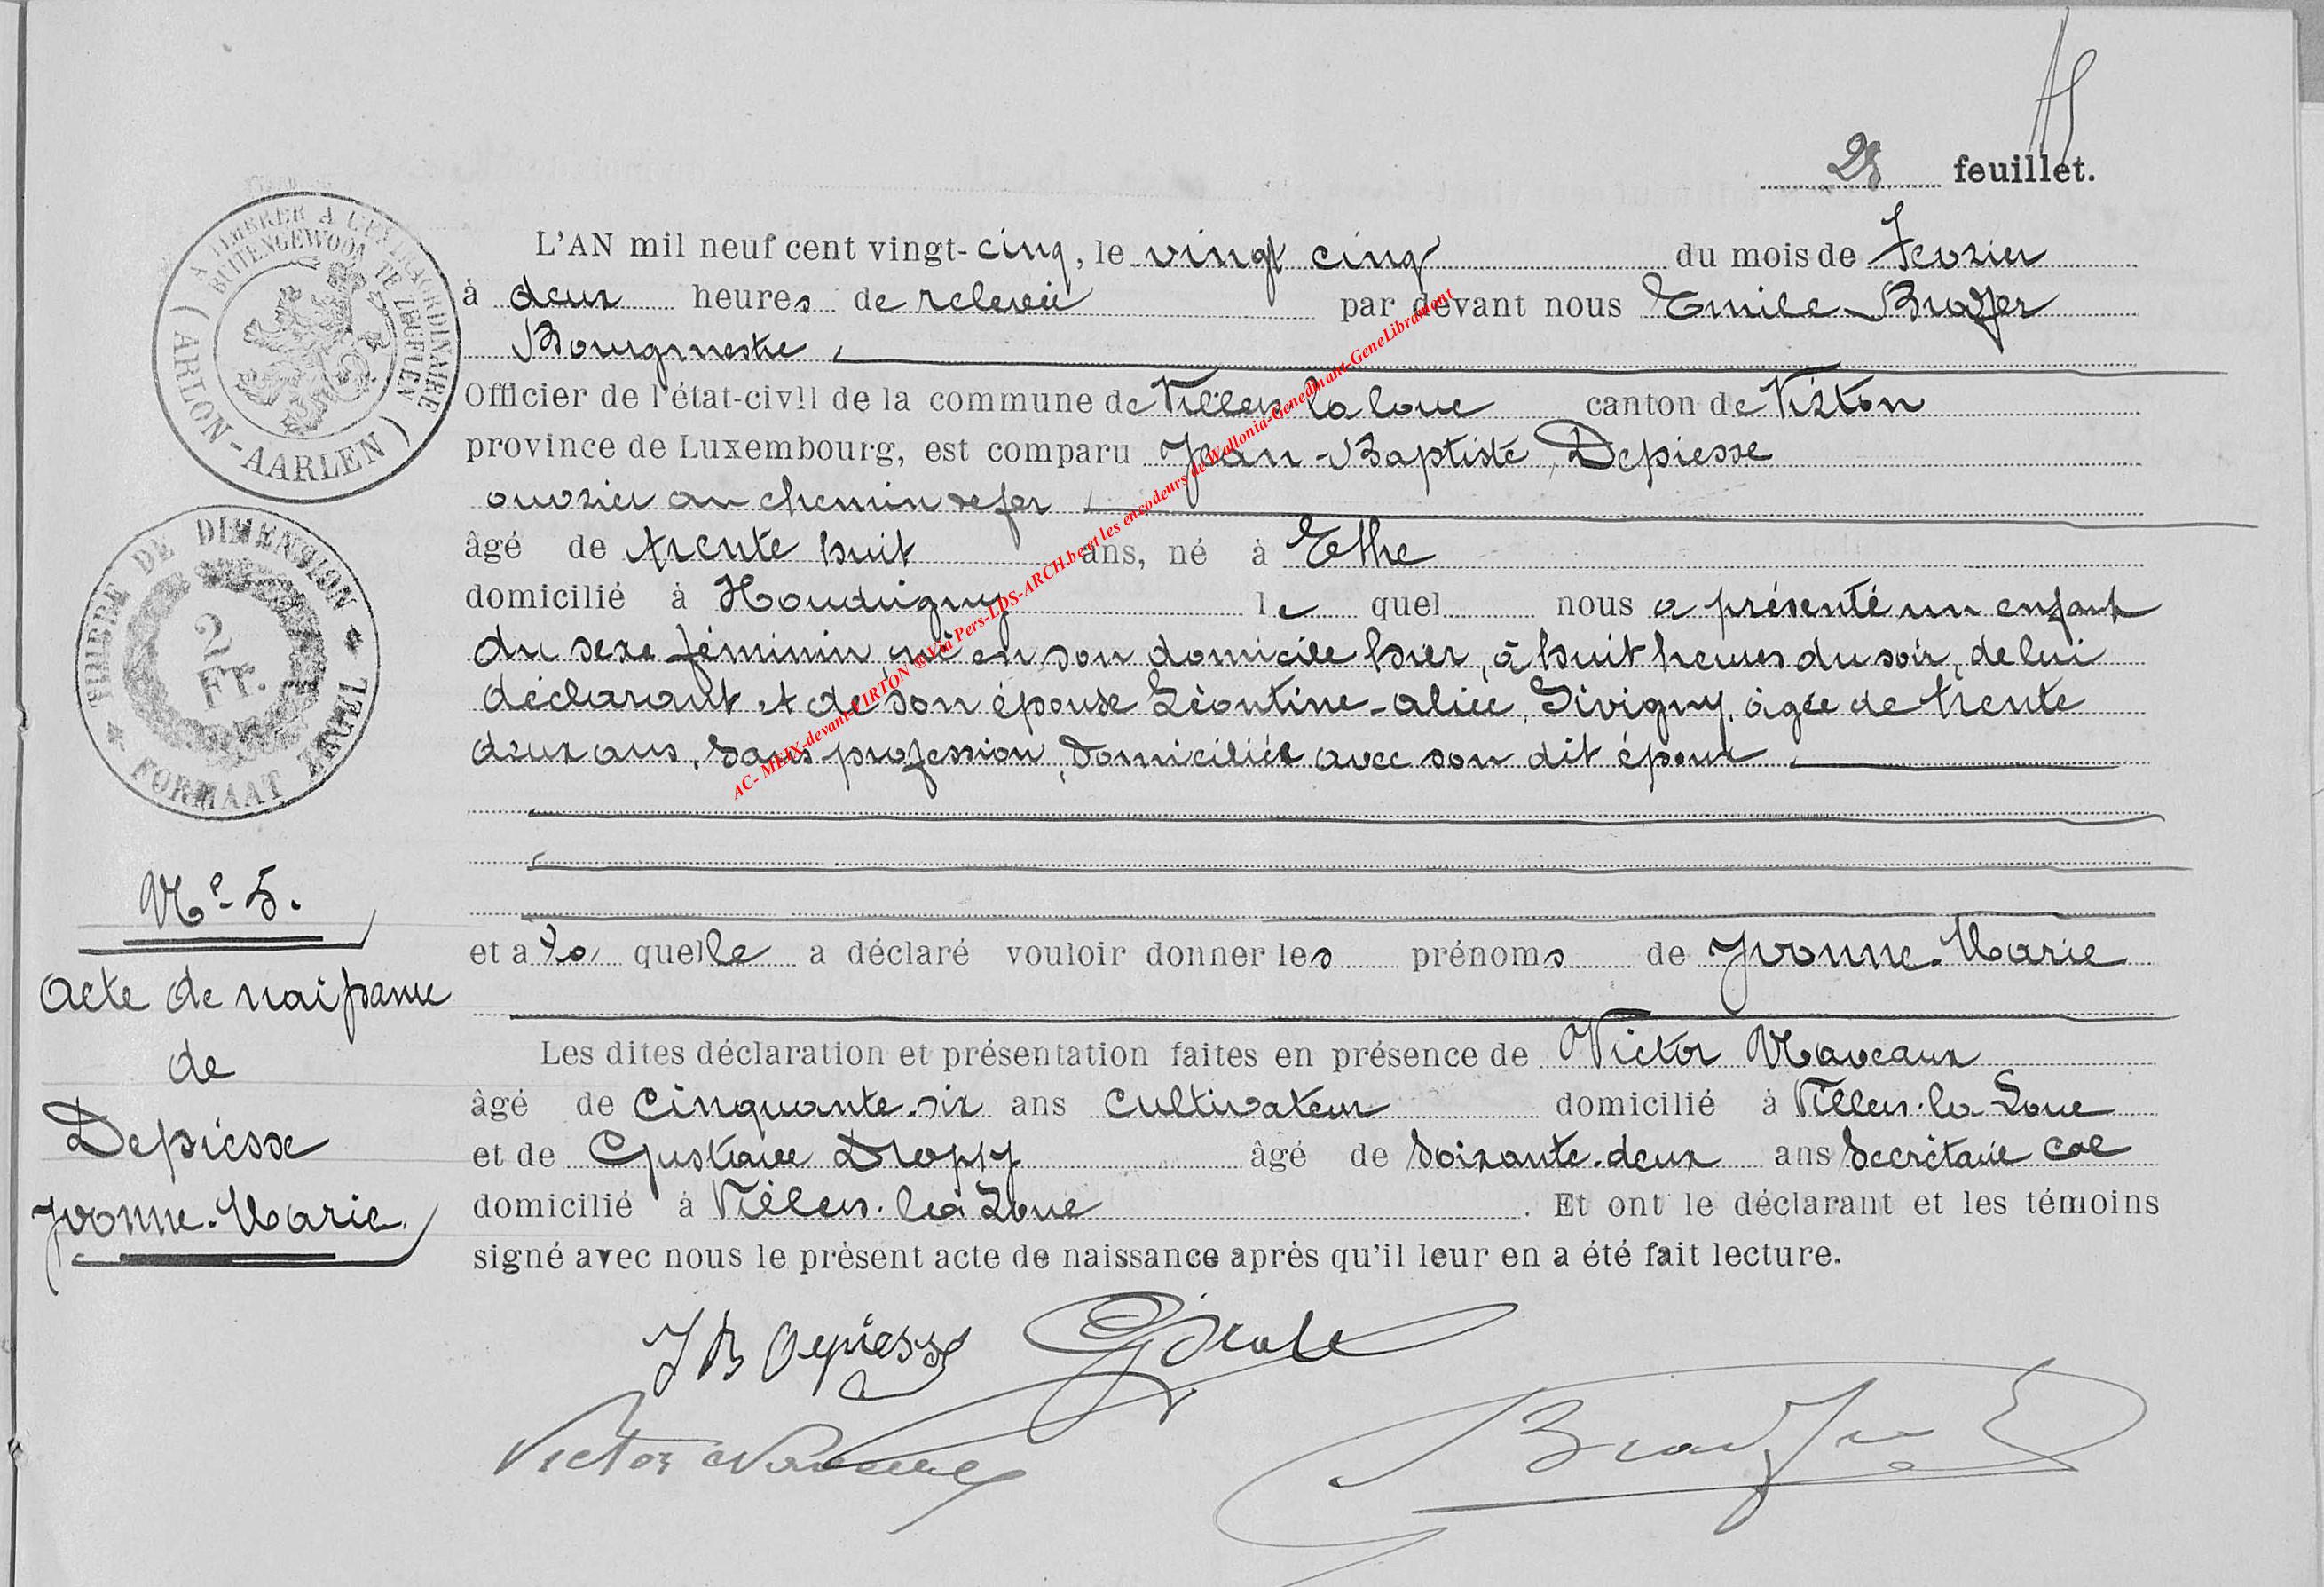 28 feuillet.
A TIMBRER A L'EXTRAORDINAIRE
BUITENGEWOON TE ZEGELEN
( ARLON - AARLEN )
L'AN mil neuf cent vingt-cinq, le vingt cinq du mois de Fevrier
à deux heures de relevée par devant nous Emile
Bourgmestre
Officier de l'état-civil de la commune de Villers la loue canton de Virton
province de Luxembourg, est comparu Jean-Baptiste, Depiesse
ouvrier au chemin de fer
âgé de trente huit ans, né à Ethe
domicilié à Houdrigny le quel nous a présenté un enfant
du sexe féminin, né en son domicile hier, à huit heures du soir, de lui
déclarant et de son épouse Léontine-alice, Sivigny, âgée de trente
deux ans, sans profession, domiciliée avec son dit époux
TIMBRE DE DIMENSION
2
Fr.
FORMAAT ZEGEL
AC- MEIX-devant-VIRTON ® via Pers-LDS-ARCH.be et les encodeurs de Wallonia-Genedinant-GeneLibramont
Nº 5.
Acte de naissance
de
Depiesse
Yvonne-Marie
et à la quelle a déclaré vouloir donner les prénoms de Yvonne-Marie
Les dites déclaration et présentation faites en présence de Victor Naveaux
âgé de cinquante-six ans cultivateur domicilié à Villers-la-Loue
et de Gustave âgé de soixante-deux ans Secrétaire cal
domicilié à Villers-la-Loue. Et ont le déclarant et les témoins
signé avec nous le présent acte de naissance après qu'il leur en a été fait lecture.
JB Depiesse
Victor Naveaux